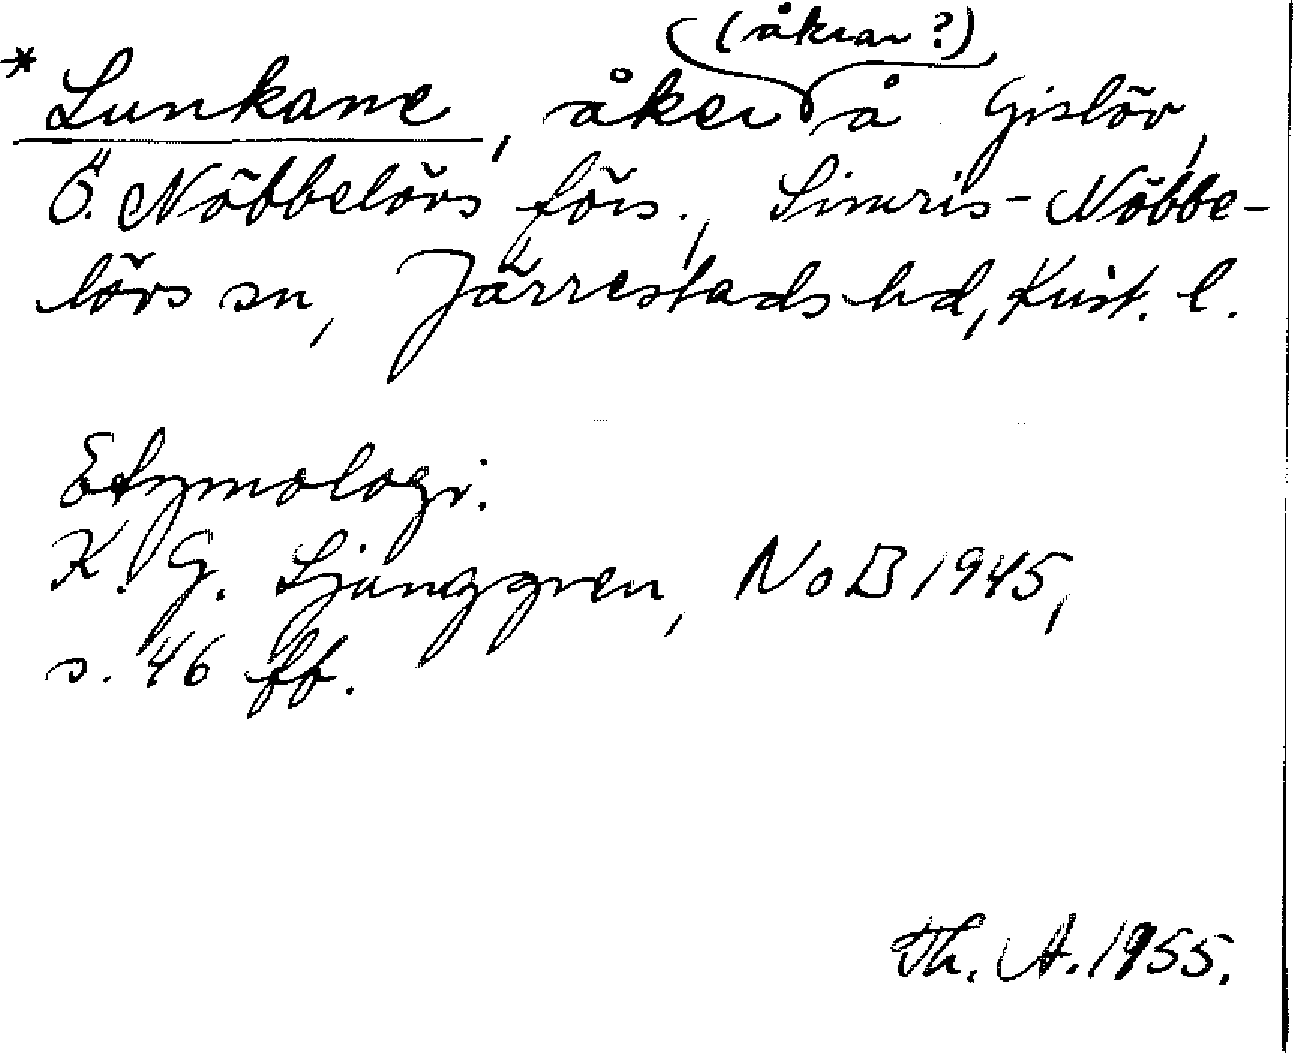 (åkrar?)
* Lunkane, åker å Gislöv,
Ö. Nöbbelövsförs., Simris-Nöbbe-
lövs sn, Järrestads hd, Krist. l.
Etymologi.
K. G. Ljunggren, NoB 1945,
s. 46 ff.
Th. A. 1955.